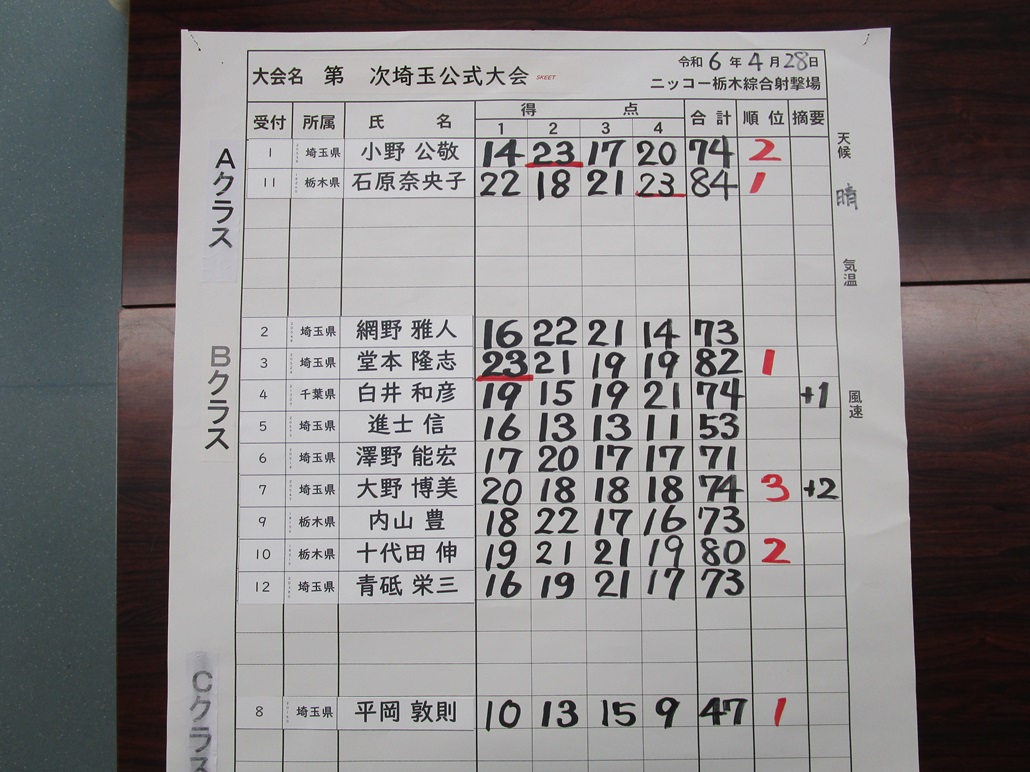 令和 6 年 4 月 28 日
大会名 第 次埼玉公式大会 SKEET
ニッコー栃木綜合射撃場
受付 所属 氏 名 得 点 合計 順位 摘要
1 2 3 4
Aクラス
1 埼玉県 小野 公敬 14 23 17 20 74 2
11 栃木県 石原奈央子 22 18 21 23 84 1
Bクラス
2 埼玉県 網野 雅人 16 22 21 14 73
3 埼玉県 堂本 隆志 23 21 19 19 82 1
4 千葉県 白井 和彦 19 15 19 21 74 +1
5 埼玉県 進士 信 16 13 13 11 53
6 埼玉県 澤野 能宏 17 20 17 17 71
7 埼玉県 大野 博美 20 18 18 18 74 3 +2
9 栃木県 内山 豊 18 22 17 16 73
10 栃木県 十代田 伸 19 21 21 19 80 2
12 埼玉県 青砥 栄三 16 19 21 17 73
Cクラス
8 埼玉県 平岡 敦則 10 13 15 9 47 1
天候
晴
気温
風速